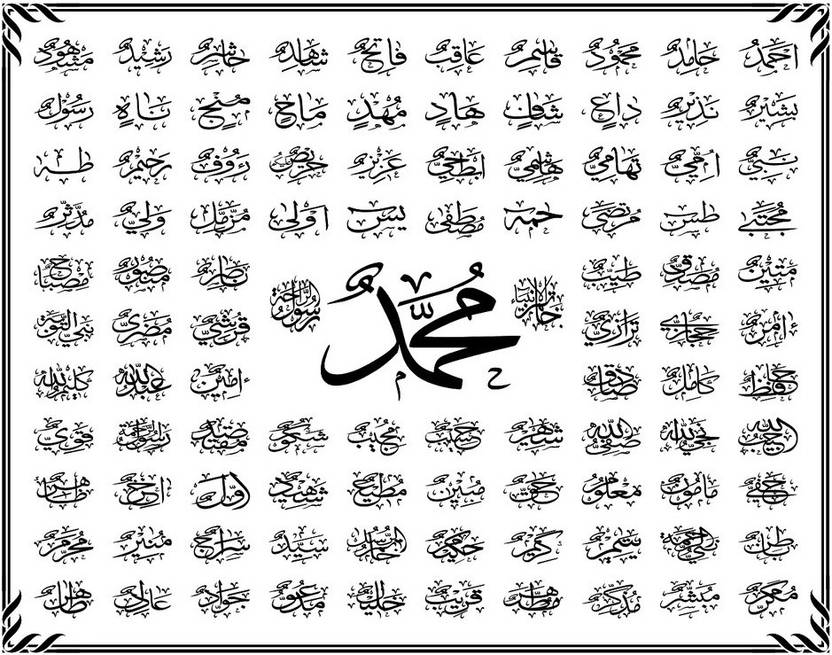 أحمد حامد محمود قاسم عاقب فاتح شاهد حاشر رشيد مشهود
بشير نذير داع شاف هاد مهد ماح منج ناه رسول
نبي أمي تهامي هاشمي أبطحي عزيز حريص رءوف رحيم طه
مجتبى طس مرتضى حم مصطفى يس أولى مزمل ولي مدثر
متين مصدق طيب ناصر منصور مصباح
حجازي ترازي قرشي مضري نبي التوبة
محمد
حافظ كامل صادق أمين عبد الله كليم الله
حبيب الله نجي الله صفي الله حسيب مجيب شكور رسول الرحمة قوي
حفي مأمون معلوم حق مبين مطيع شهيد أول آخر ظاهر
نبي الرحمة يتيم كريم حكيم سيد سراج منير محرم
مبشر مذكر مطهر قريب خليل مدعو جواد عادل